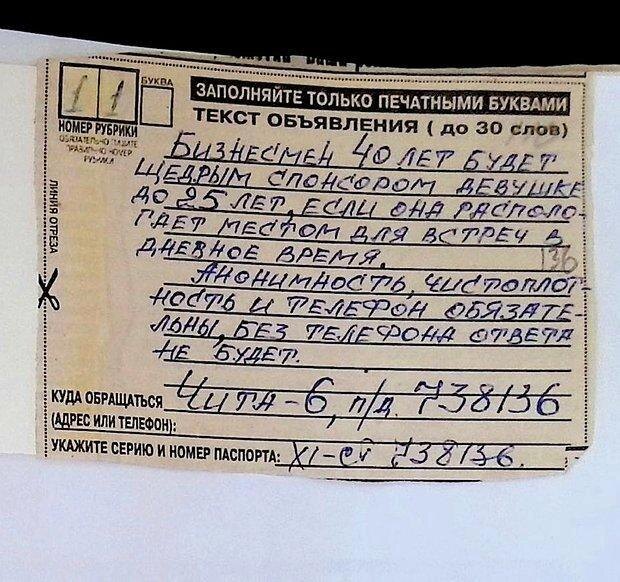 1 1
БУКВА
НОМЕР РУБРИКИ
ОБЯЗАТЕЛЬНО ПИШИТЕ
ПРАВИЛЬНО НОМЕР
РУБРИКИ
ЛИНИЯ ОТРЕЗА
ЗАПОЛНЯЙТЕ ТОЛЬКО ПЕЧАТНЫМИ БУКВАМИ
ТЕКСТ ОБЪЯВЛЕНИЯ ( до 30 слов)
БИЗНЕСМЕН 40 ЛЕТ БУДЕТ
ЩЕДРЫМ СПОНСОРОМ ДЕВУШКЕ
ДО 25 ЛЕТ, ЕСЛИ ОНА РАСПОЛО-
ГАЕТ МЕСТОМ ДЛЯ ВСТРЕЧ В
ДНЕВНОЕ ВРЕМЯ. 136
АНОНИМНОСТЬ, ЧИСТОПЛОТ-
НОСТЬ И ТЕЛЕФОН ОБЯЗАТЕ-
ЛЬНЫ, БЕЗ ТЕЛЕФОНА ОТВЕТА
НЕ БУДЕТ.
КУДА ОБРАЩАТЬСЯ ЧИТА-6, п/д. 738136
(АДРЕС ИЛИ ТЕЛЕФОН):
УКАЖИТЕ СЕРИЮ И НОМЕР ПАСПОРТА: XI-СП 738136.